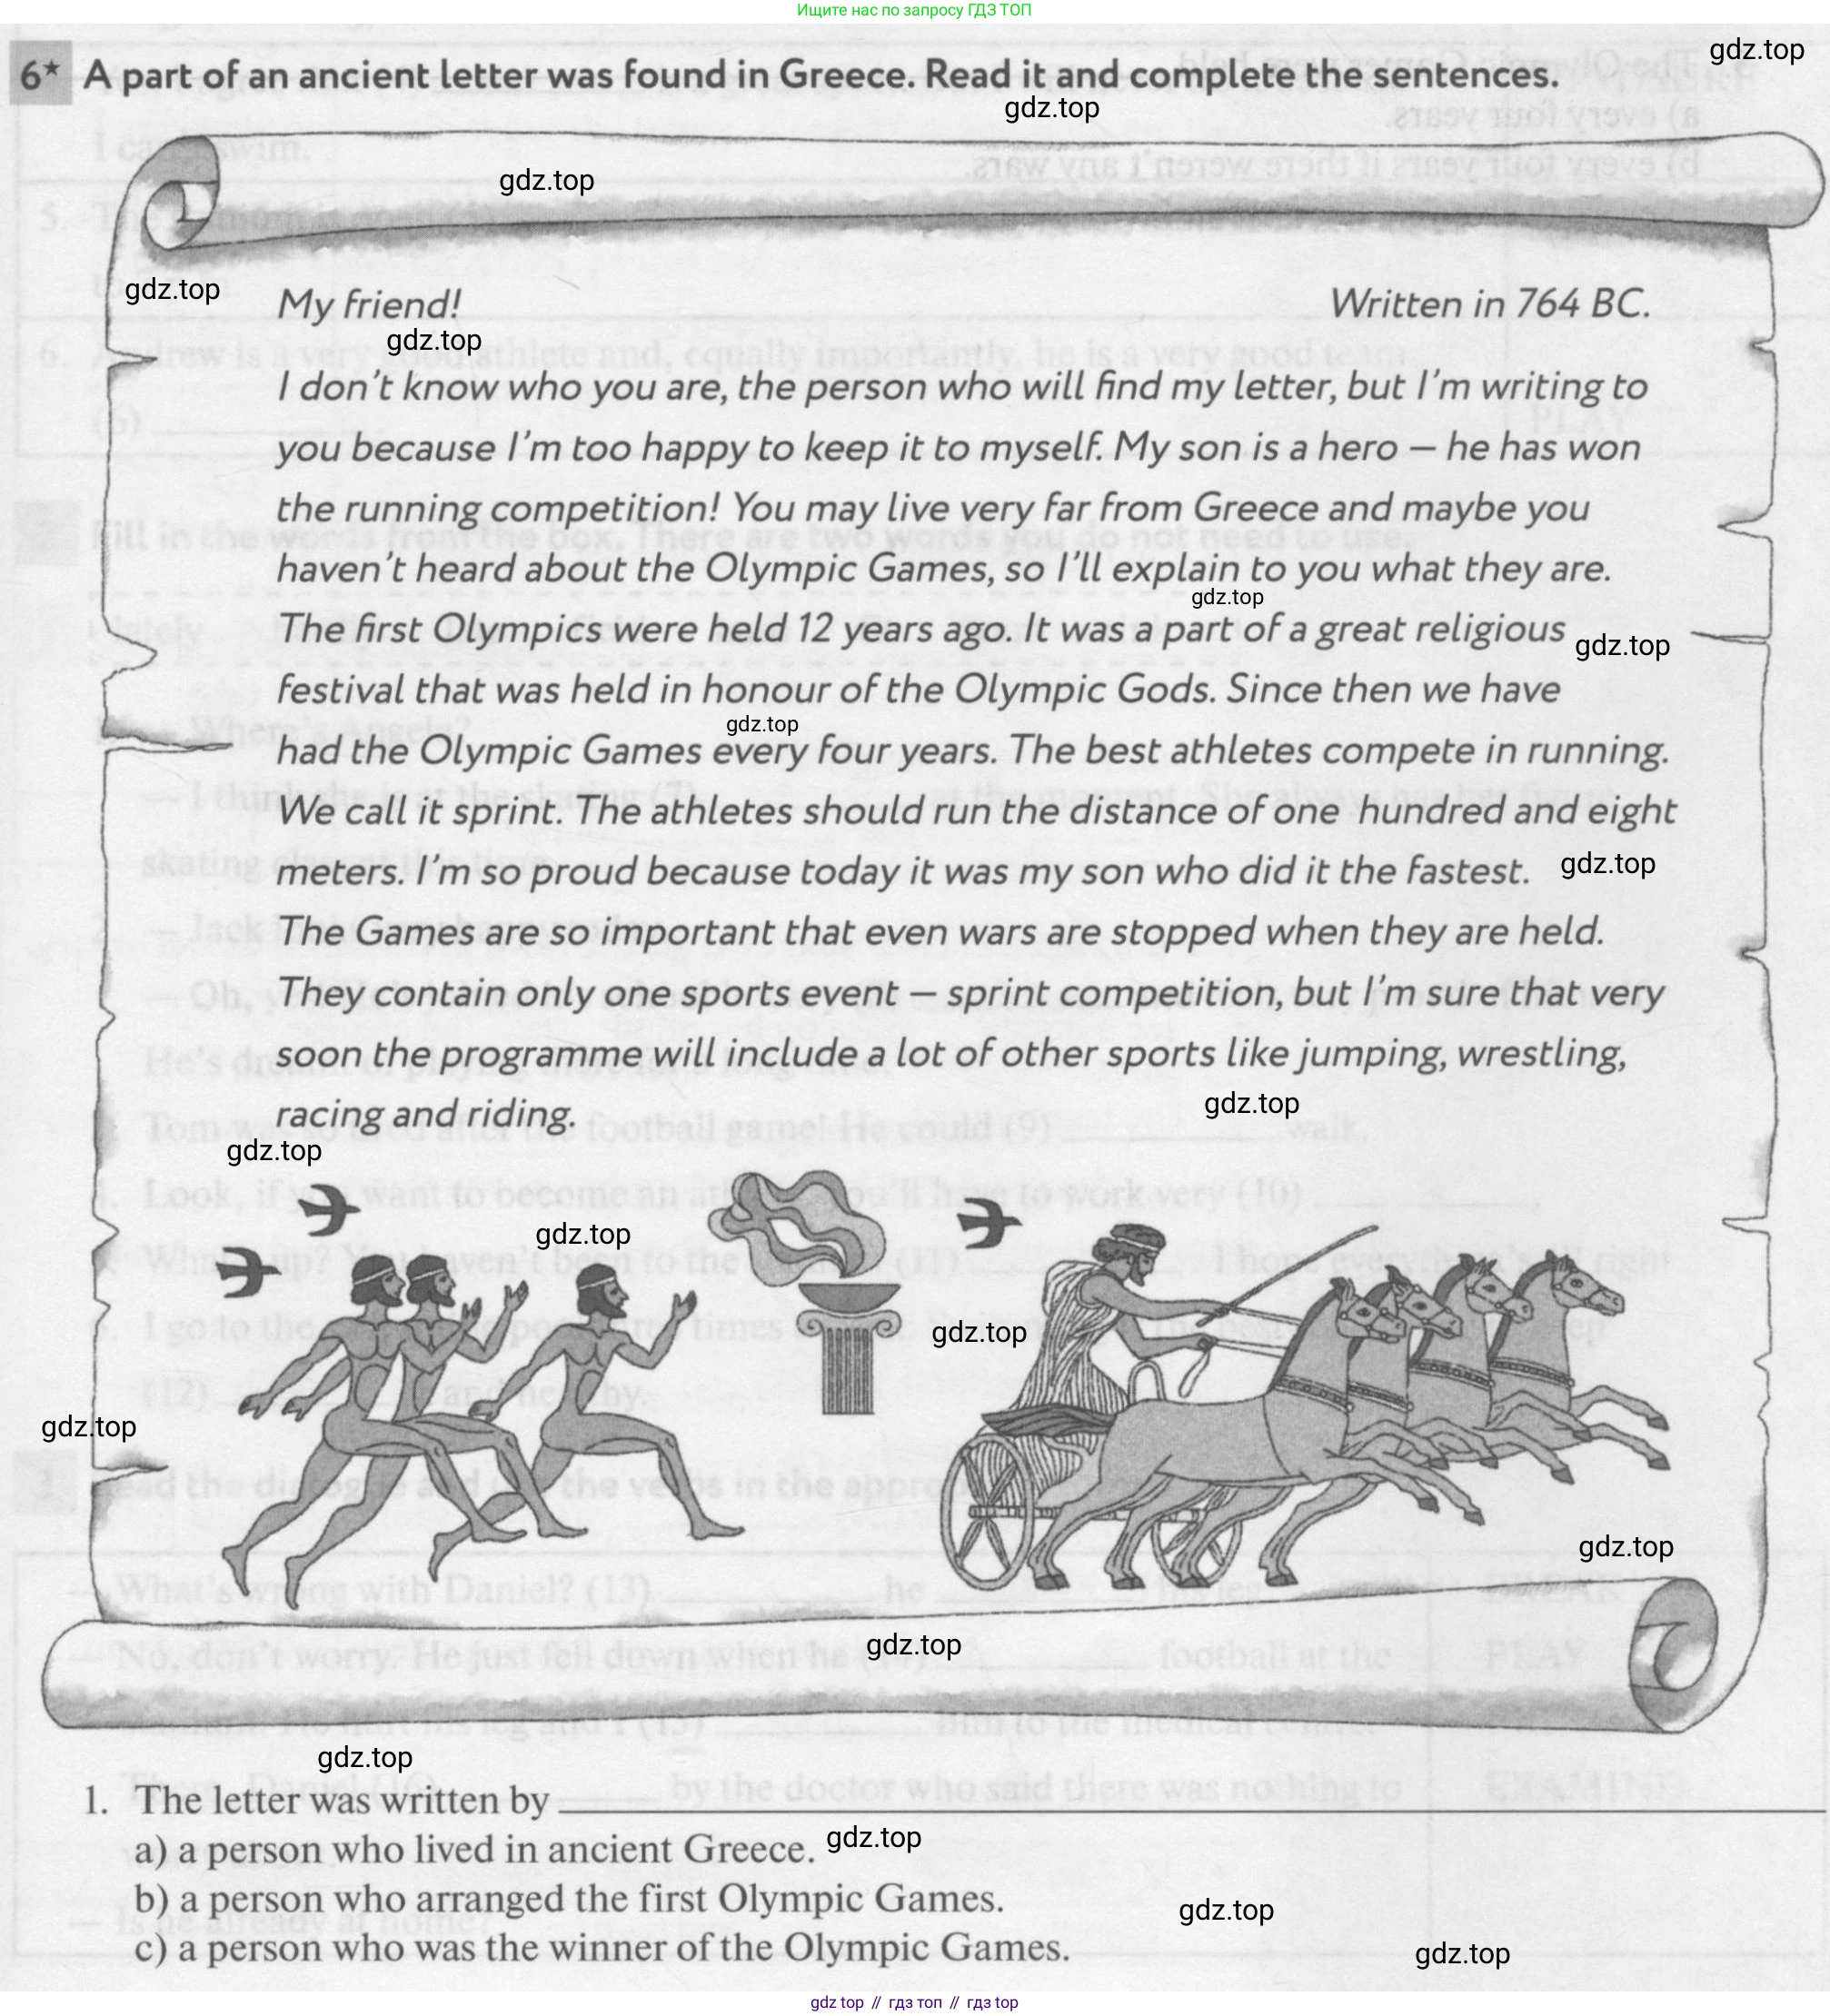 Ищите нас по запросу ГДЗ ТОП
gdz.top
6* A part of an ancient letter was found in Greece. Read it and complete the sentences.
gdz.top
gdz.top
gdz.top
My friend! Written in 764 BC.
gdz.top
I don't know who you are, the person who will find my letter, but I'm writing to
you because I'm too happy to keep it to myself. My son is a hero – he has won
the running competition! You may live very far from Greece and maybe you
haven't heard about the Olympic Games, so I'll explain to you what they are.
gdz.top
The first Olympics were held 12 years ago. It was a part of a great religious
gdz.top
festival that was held in honour of the Olympic Gods. Since then we have
gdz.top
had the Olympic Games every four years. The best athletes compete in running.
We call it sprint. The athletes should run the distance of one hundred and eight
meters. I'm so proud because today it was my son who did it the fastest.
gdz.top
The Games are so important that even wars are stopped when they are held.
They contain only one sports event – sprint competition, but I'm sure that very
soon the programme will include a lot of other sports like jumping, wrestling,
racing and riding.
gdz.top
gdz.top
gdz.top
gdz.top
gdz.top
gdz.top
gdz.top
gdz.top
1. The letter was written by
a) a person who lived in ancient Greece.
gdz.top
b) a person who arranged the first Olympic Games.
gdz.top
c) a person who was the winner of the Olympic Games.
gdz.top
gdz top // гдз топ // gdz top